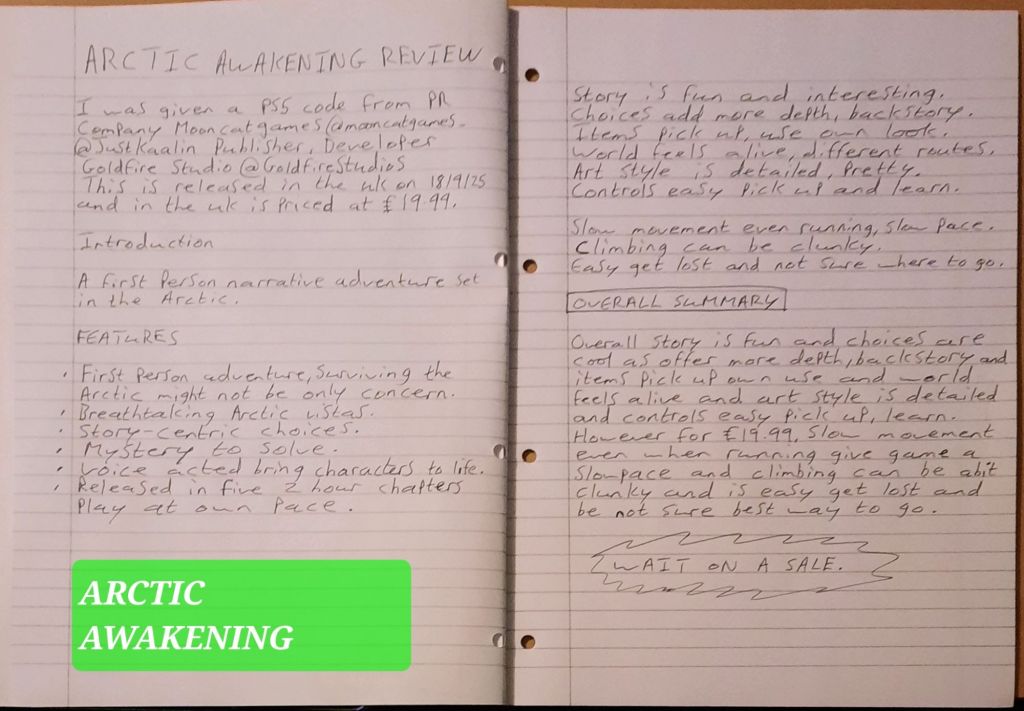 ARCTIC AWAKENING REVIEW
I was given a PS5 code from PR
Company Mooncatgames(@mooncatgames.
@JustKaalin Publisher, Developer
Goldfire Studio @GoldfireStudios
This is released in the uk on 18/9/25
and in the uk is priced at £19.99.
Introduction
A first Person narrative adventure set
in the Arctic.
FEATURES
· First Person adventure, Surviving the
Arctic might not be only concern.
· Breathtaking Arctic vistas.
· Story-centric choices.
· Mystery to Solve.
· Voice acted bring characters to life.
· Released in five 2 hour chapters
Play at own Pace.
ARCTIC
AWAKENING
Story is fun and interesting.
Choices add more depth, backstory.
Items Pick up, use own look.
World feels alive, different routes.
Art Style is detailed, Pretty.
Controls easy Pick up and learn.
Slow movement even running, slow Pace.
Climbing can be clunky.
Easy get lost and not Sure where to go.
OVERALL SUMMARY
Overall Story is fun and choices are
cool as offer more depth, backstory and
items Pick up own use and world
feels alive and art style is detailed
and controls easy Pick up, learn.
However for £19.99, Slow movement
even when running give game a
Slow pace and climbing can be abit
clunky and is easy get lost and
be not sure best way to go.
WAIT ON A SALE.